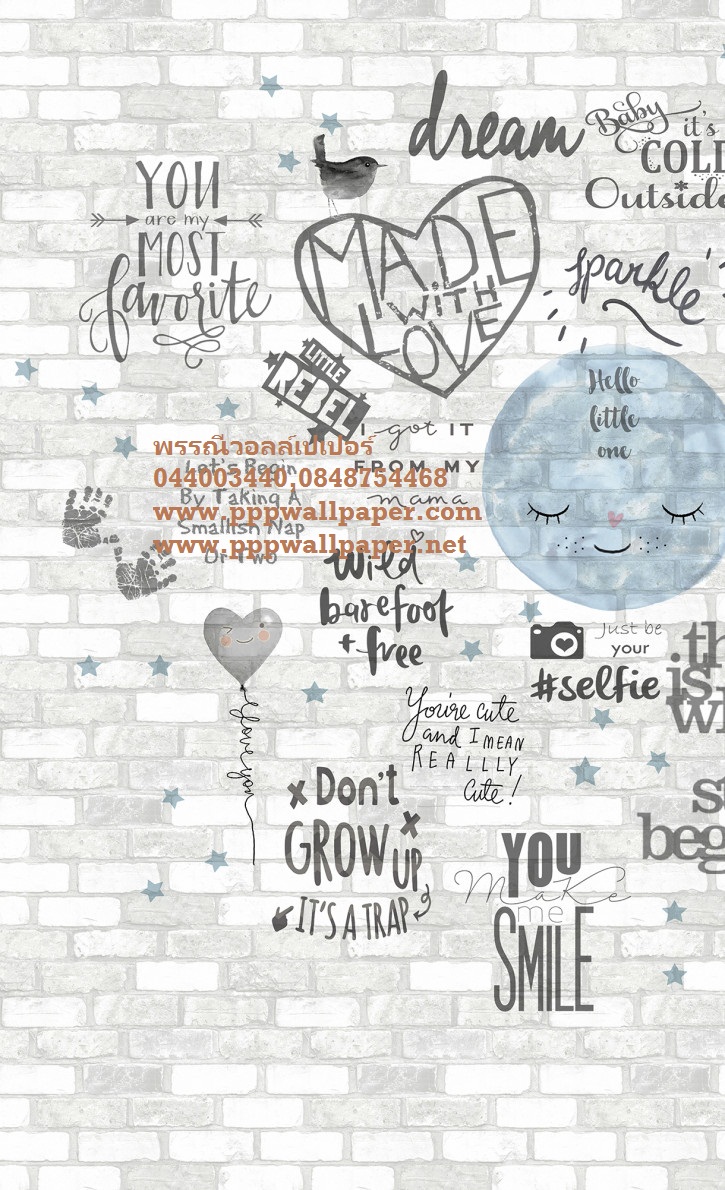 dream
Baby
it's
COLD
Outside
YOU
are my
MOST
favorite
MADE
WITH
LOVE
sparkle
LITTLE
REBEL
Hello
little
one
I got IT
FROM MY
mama
พรรณีวอลล์เปเปอร์
044003440,0848754468
www.pppwallpaper.com
www.pppwallpaper.net
Let's Begin
By Taking A
Smallish Nap
Or Two
wild
barefoot
+ free
Just be
your
#selfie
th
is
wi
I love you
You're cute
and I MEAN
REALLLY
Cute!
Don't
GROW UP
IT'S A TRAP
st
beg
YOU
Make
me
SMILE